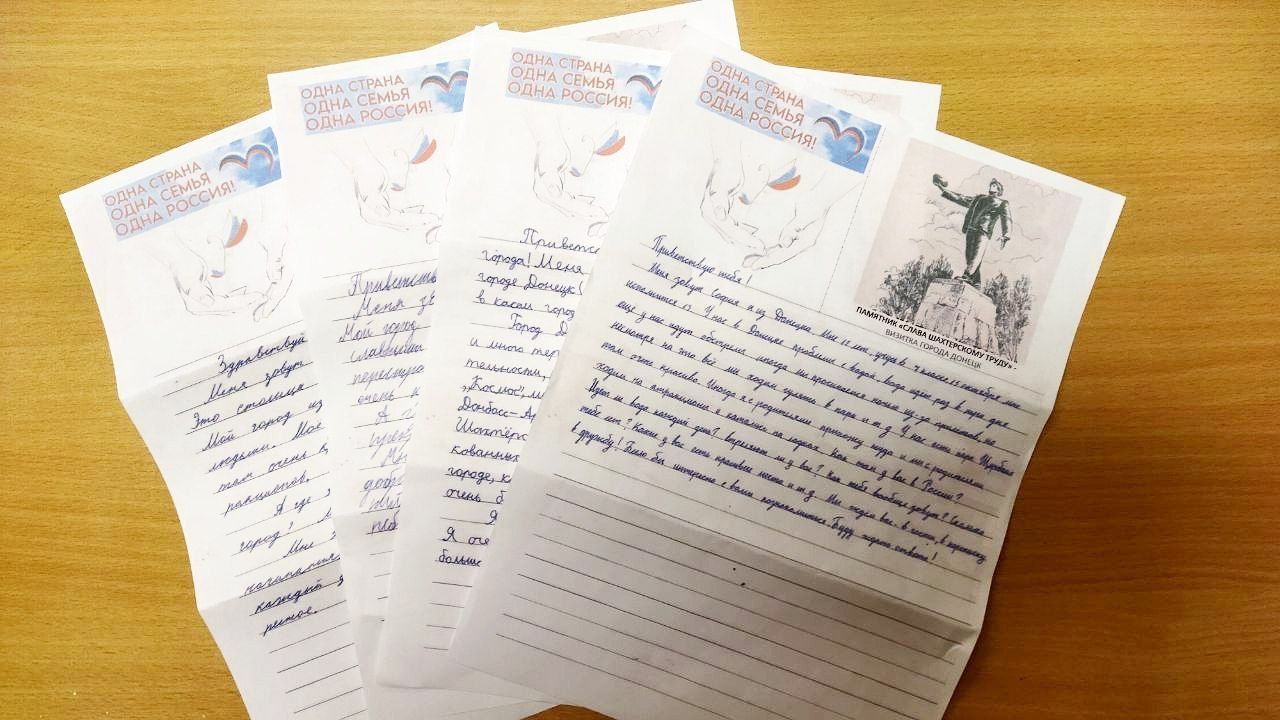 ОДНА СТРАНА
ОДНА СЕМЬЯ
ОДНА РОССИЯ!
Здравствуй
Меня зовут
Это столица
Мой город из
людьми. Мое
там очень к
А где
город?
Мне
каждый
ОДНА СТРАНА
ОДНА СЕМЬЯ
ОДНА РОССИЯ!
Приветств
Меня зв
Мой горо
очень к
А г
ОДНА СТРАНА
ОДНА СЕМЬЯ
ОДНА РОССИЯ!
Приветс
города! Меня
городе Донецк!
в каком город
Город Д
и много тер
тельности,
„Космос",
Донбасс-Ар
Шахтёрс
кованных
городе, к
очень б
Я
Я оче
больше
ОДНА СТРАНА
ОДНА СЕМЬЯ
ОДНА РОССИЯ!
ПАМЯТНИК «СЛАВА ШАХТЕРСКОМУ ТРУДУ» -
ВИЗИТКА ГОРОДА ДОНЕЦК
Приветствую тебя!
Меня зовут София я из Донецка. Мне 12 лет, учусь в 7 классе 15 октября мне
исполнится 13. У нас в Донецке проблемы с водой, вода идет раз в три дня
ещё у нас идут обстрелы иногда мы просыпаемся ночью из-за прилетов, но
несмотря на это всё мы ходим гулять в парк и т.д. У нас есть парк Щербакова
там очень красиво. Иногда я с родителями приезжаю туда и мы с родителями
ходим на аттракционы и катались на лодках. Как там у вас в России?
Идет ли вода каждый день? взрывают ли у вас? Как тебя вообще зовут? Сколько
тебе лет? Какие у вас есть красивые места и т.д. Мы ждем вас в гости, в переписку
в дружбу! Было бы интересно с вами познакомиться. Буду ждать ответа!